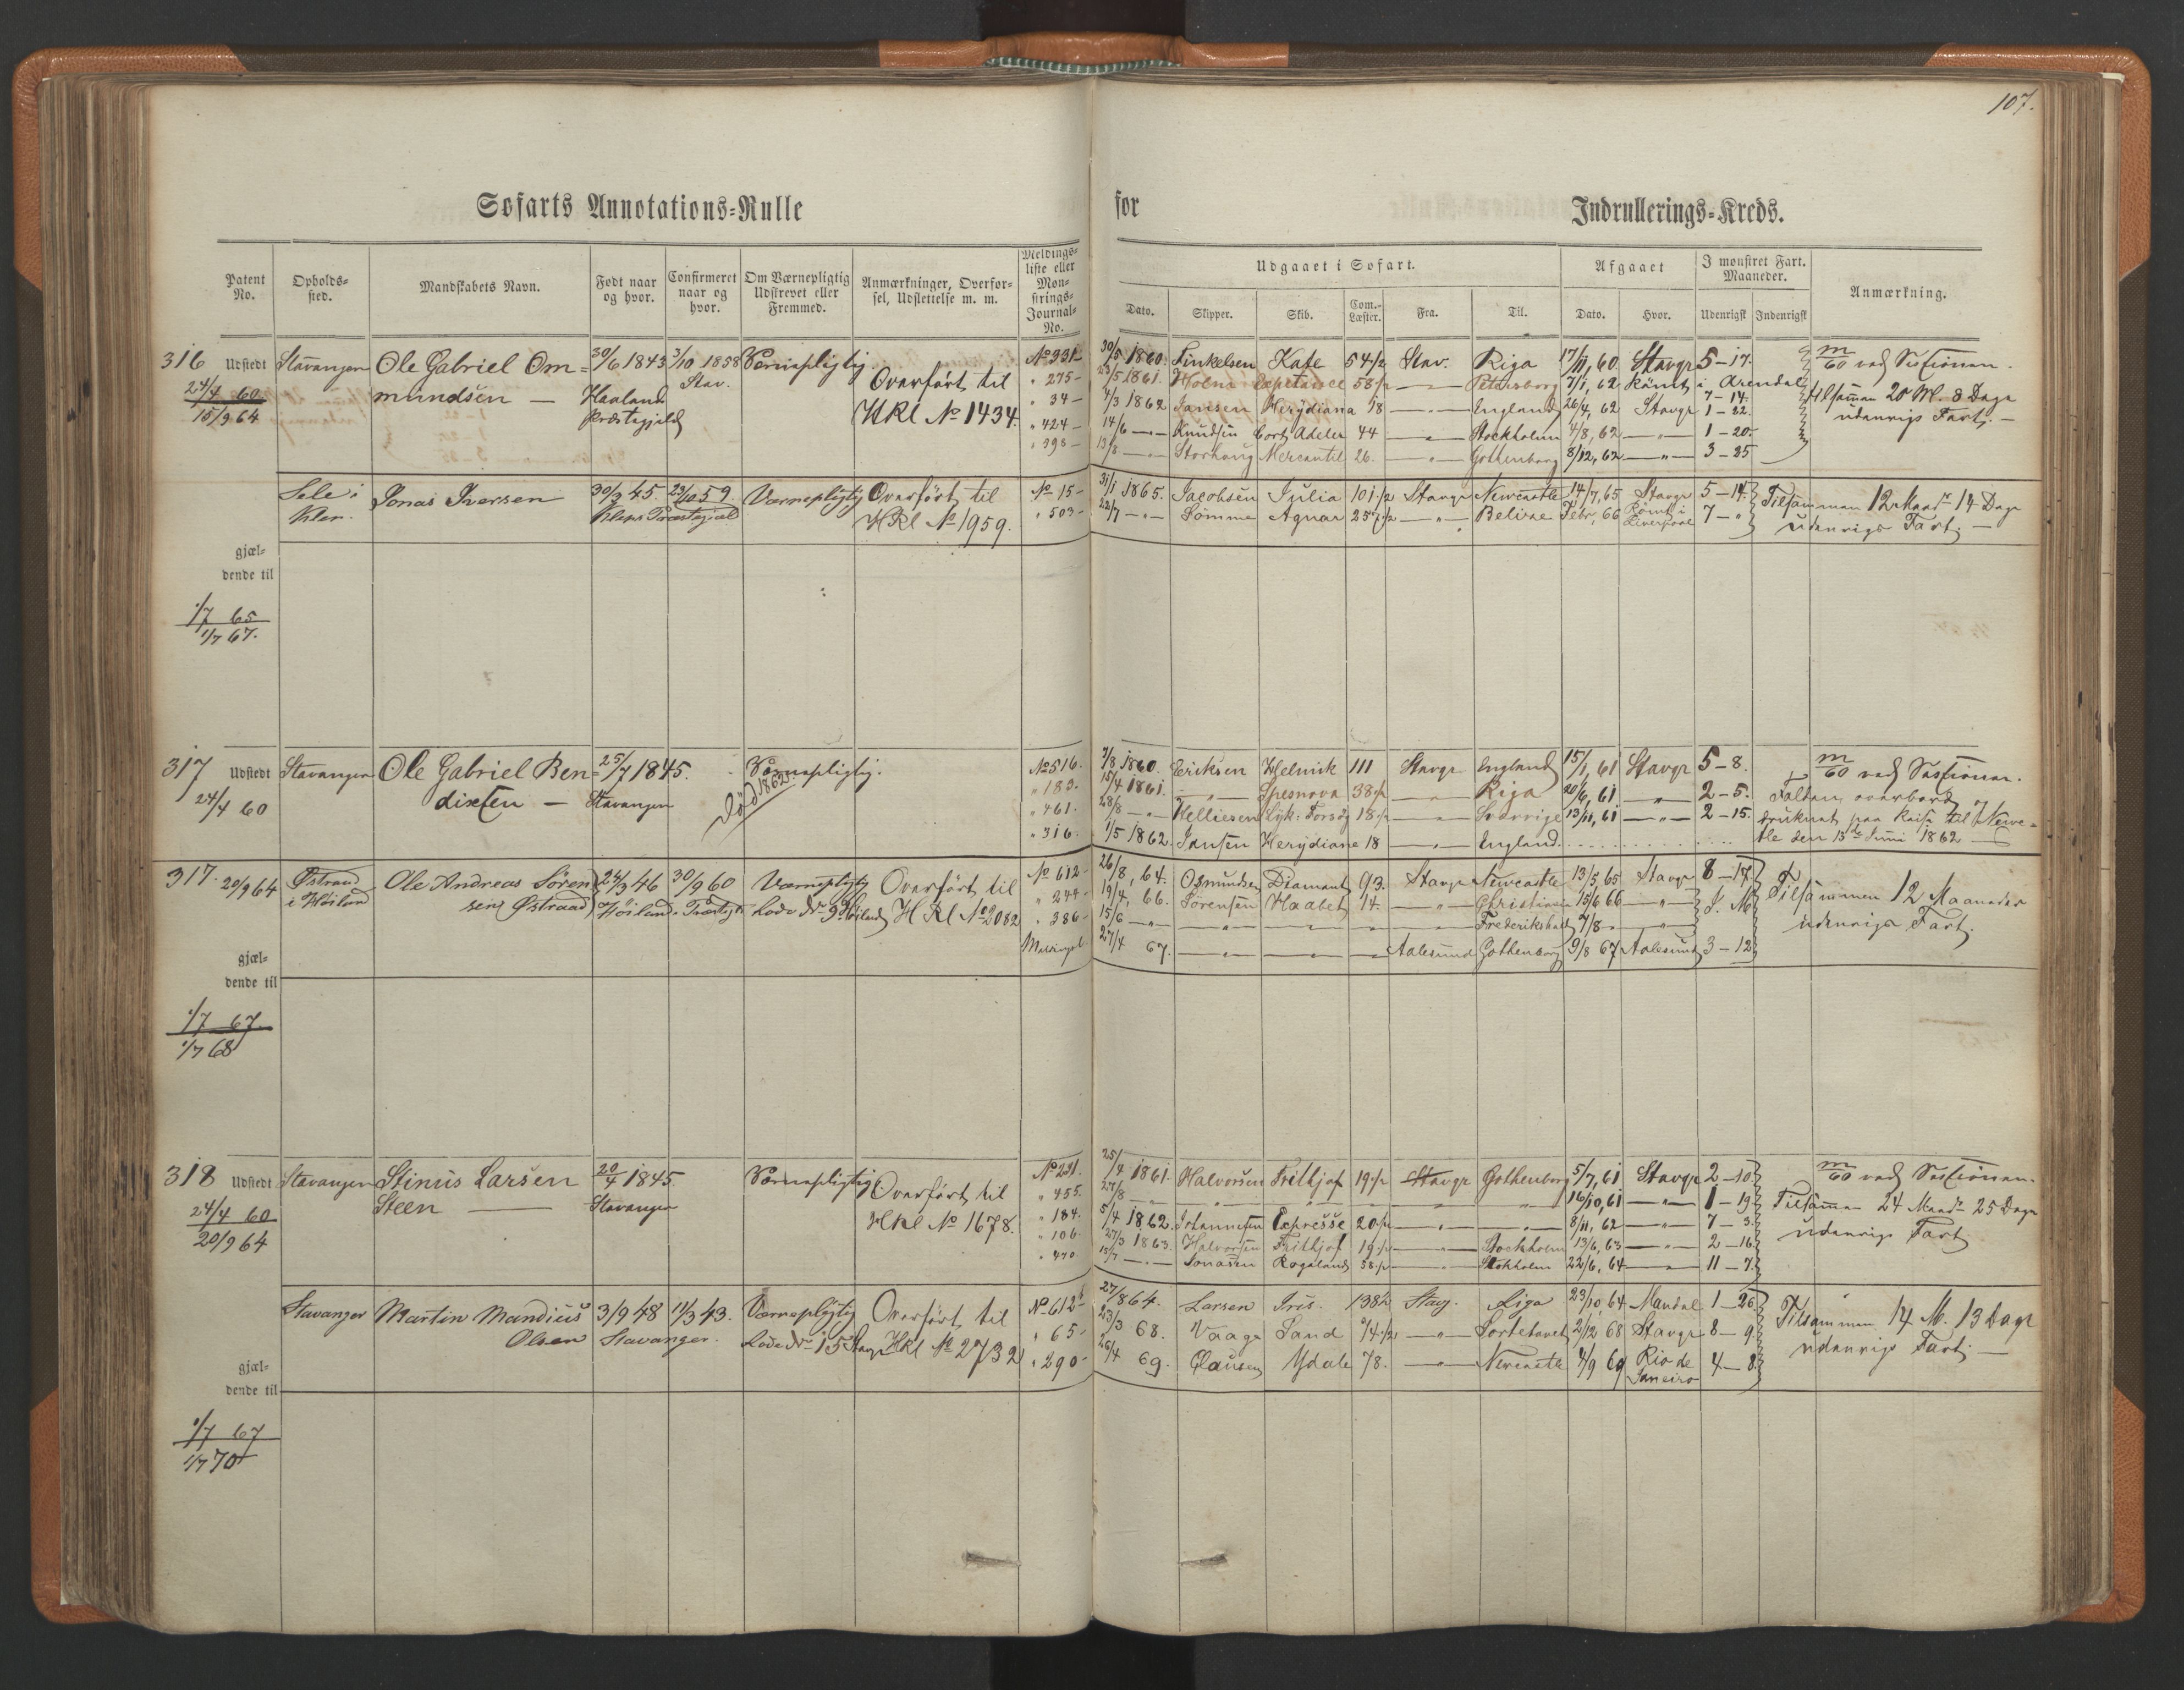 107.
Søfarts Annotations=Rulle
for
Indrullerings=Kreds.
Patent No.
Opholds-sted.
Mandskabets Navn.
Født naar og hvor.
Confirmeret naar og hvor.
Om Værnepligtig Udskrevet eller Fremmed.
Anmærkninger, Overfør-sel, Udslettelse m. m.
Meldings-liste eller Mon-strings-Journal-No.
Udgaaet i Søfart.
Dato.
Skipper.
Skib.
Com.-Læster.
Fra.
Til.
Afgaaet
Dato.
Hvor.
I mønstret Fart. Maaneder.
Udenrigsk
Indenrigsk
Anmærkning.
316 Udstedt Stavanger Ole Gabriel Om= 30/6 1843 3/10 1858 Værnepligtig
24/4 60 mundsen — Haaland Stav. Overført til
15/9 64 Præstegjeld HRl No 1434.
No 231 30/5 1860. Finkelsen Kate 54 1/2 Stav. Riga 17/11, 60 Stavgr 5-17. m/60 ved Sessionen.
" 275 /5 1861. Holm 58 1/2 — " — Petersborg 7/1, 62 Rømt i Arendal 7-14. tilsaman 20 M. 8 Dage
" 34 4/3 1862 Jansen Herydiana 18 — " — England 26/4, 62 Stavgr 1-22. udenrigs Fart. —
" 424 14/6 — " — Knudsen Cort Adeler 44 — " — Stockholm 4/8, 62 — " — 1-20.
" 398 13/8 — " — Storhaug Mercantil 26. — " — Gothenborg 8/12, 62 — " — 3-25
Sele i Jonas Iversen 30/3 45. 23/10 59. Værnepligtig Overført til
Klep. Kleps Præstegjæld HRl No 1959.
No 15 31/1 1865. Jacobsen Julia 101 1/2 Stavgr Newcastle 14/7, 65 Stavgr 5-14. Tilsammen 12 Maadr 14 Dage
" 503 22/7 — " — Sømme Agnar 257 1/2 — " — Belize Febr, 66 Rømt i Liverpool 7 - " udenrigs Fart. —
gjæl-
dende til
1/7 65
1/7 67.
317 Udstedt Stavanger Ole Gabriel Ben= 25/7 1845. Værnepligtig.
24/4 60 dixten — Stavanger Død 1862
No 516. 7/8 1860. Eriksen Helmik 111 Stavgr England 15/1, 61 Stavgr 5-8. m/60 ved Sessionen.
" 183. 15/4 1861. — " — Spesnova 38 1/2 — " — Riga 20/6, 61 — " — 2-5. Falden overbord
" 461. 28/8 — " — Helliesen Lyk: Forsøg 18 1/2 — " — Sverrige 13/11, 61 — " — 2-15. druknet paa Reise til Newca=
" 316. 1/5 1862. Jansen Herydiane 18 — " — England. stle den 13de Juni 1862
317. 20/9 64 Østraad Ole Andreas Søren 24/3 46 30/9 60 Værnepligtig Overført til
i Høiland sen Østraad Høiland Præstegj. Lods Nr 9 Høiland HRl No 2082
No 612 26/8, 64. Osmundsen Diamant 93. Stavgr Newcastle 13/5, 65 Stavgr 8-17 Tilsammen 12 Maaneder
" 244 19/4, 66. Sørensen Haabet 14. — " — Christiania 15/6 66 — " — udenrigs Fart.
" 386 15/6 — " — — " — — " — — " — Frederikshald 7/8 — " —
27/4 67. — " — — " — Aalesund Gothenborg 9/8 67 Aalesund 3-12
gjæl-
dende til
1/7 67
1/7 68
318 Udstedt Stavanger Stinus Larsen 20/4 1845. Værnepligtig Overført til
24/4 60 Steen — Stavanger HRl No 1678.
20/9 64
No 231. 25/4 1861. Halvorsen Frithjof 19 1/2 Stavgr Gothenborg 5/7, 61 Stavgr 2-10 m/60 ved Sessionen.
" 455. 27/8 — " — " " " " 16/10, 61 — " — 1-19 Tilsaman 24 Maadr 25 Dage
" 184. 5/4 1862. Johannesen Expresse 20 1/2 — " — — " — 8/11, 62 — " — 7-3. udenrigs Fart.
" 106. 27/3 1863. Halvorsen Frithjof 19 1/2 — " — Stockholm 13/6, 63 — " — 2-16.
" 470. 15/7 — " — Jonasen Rogaland 58 1/2 — " — Stokholm 22/6, 64 — " — 11-7.
Stavanger Martin Mandius 3/9 48 11/3 43. Værnepligtig Overført til
Olsen Stavanger. Lods Nr 15 Stavgr HRl No 2732
No 612 27/8 64. Larsen Iris. 138 1/2 Stavg. Riga 23/10, 64 Mandal 1-26 Tilsammen 14 M. 13 Dage
" 65 23/3 68. Vaage Sand 74 1/2 — " — Sortehavet 2/12 68 Stavgr 8-9 udenrigs Fart. —
" 290 26/4 69. Clausen Ydale 78. — " — Newcastle 4/9 69 Rio de Janeiro 4-8
gjæl-
dende til
1/7 67
1/7 70